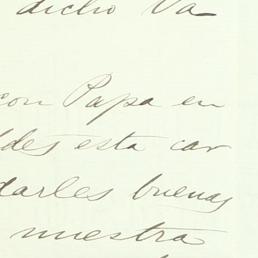 dicho Va
con Papa en
des esta car
darles buenas
nuestra